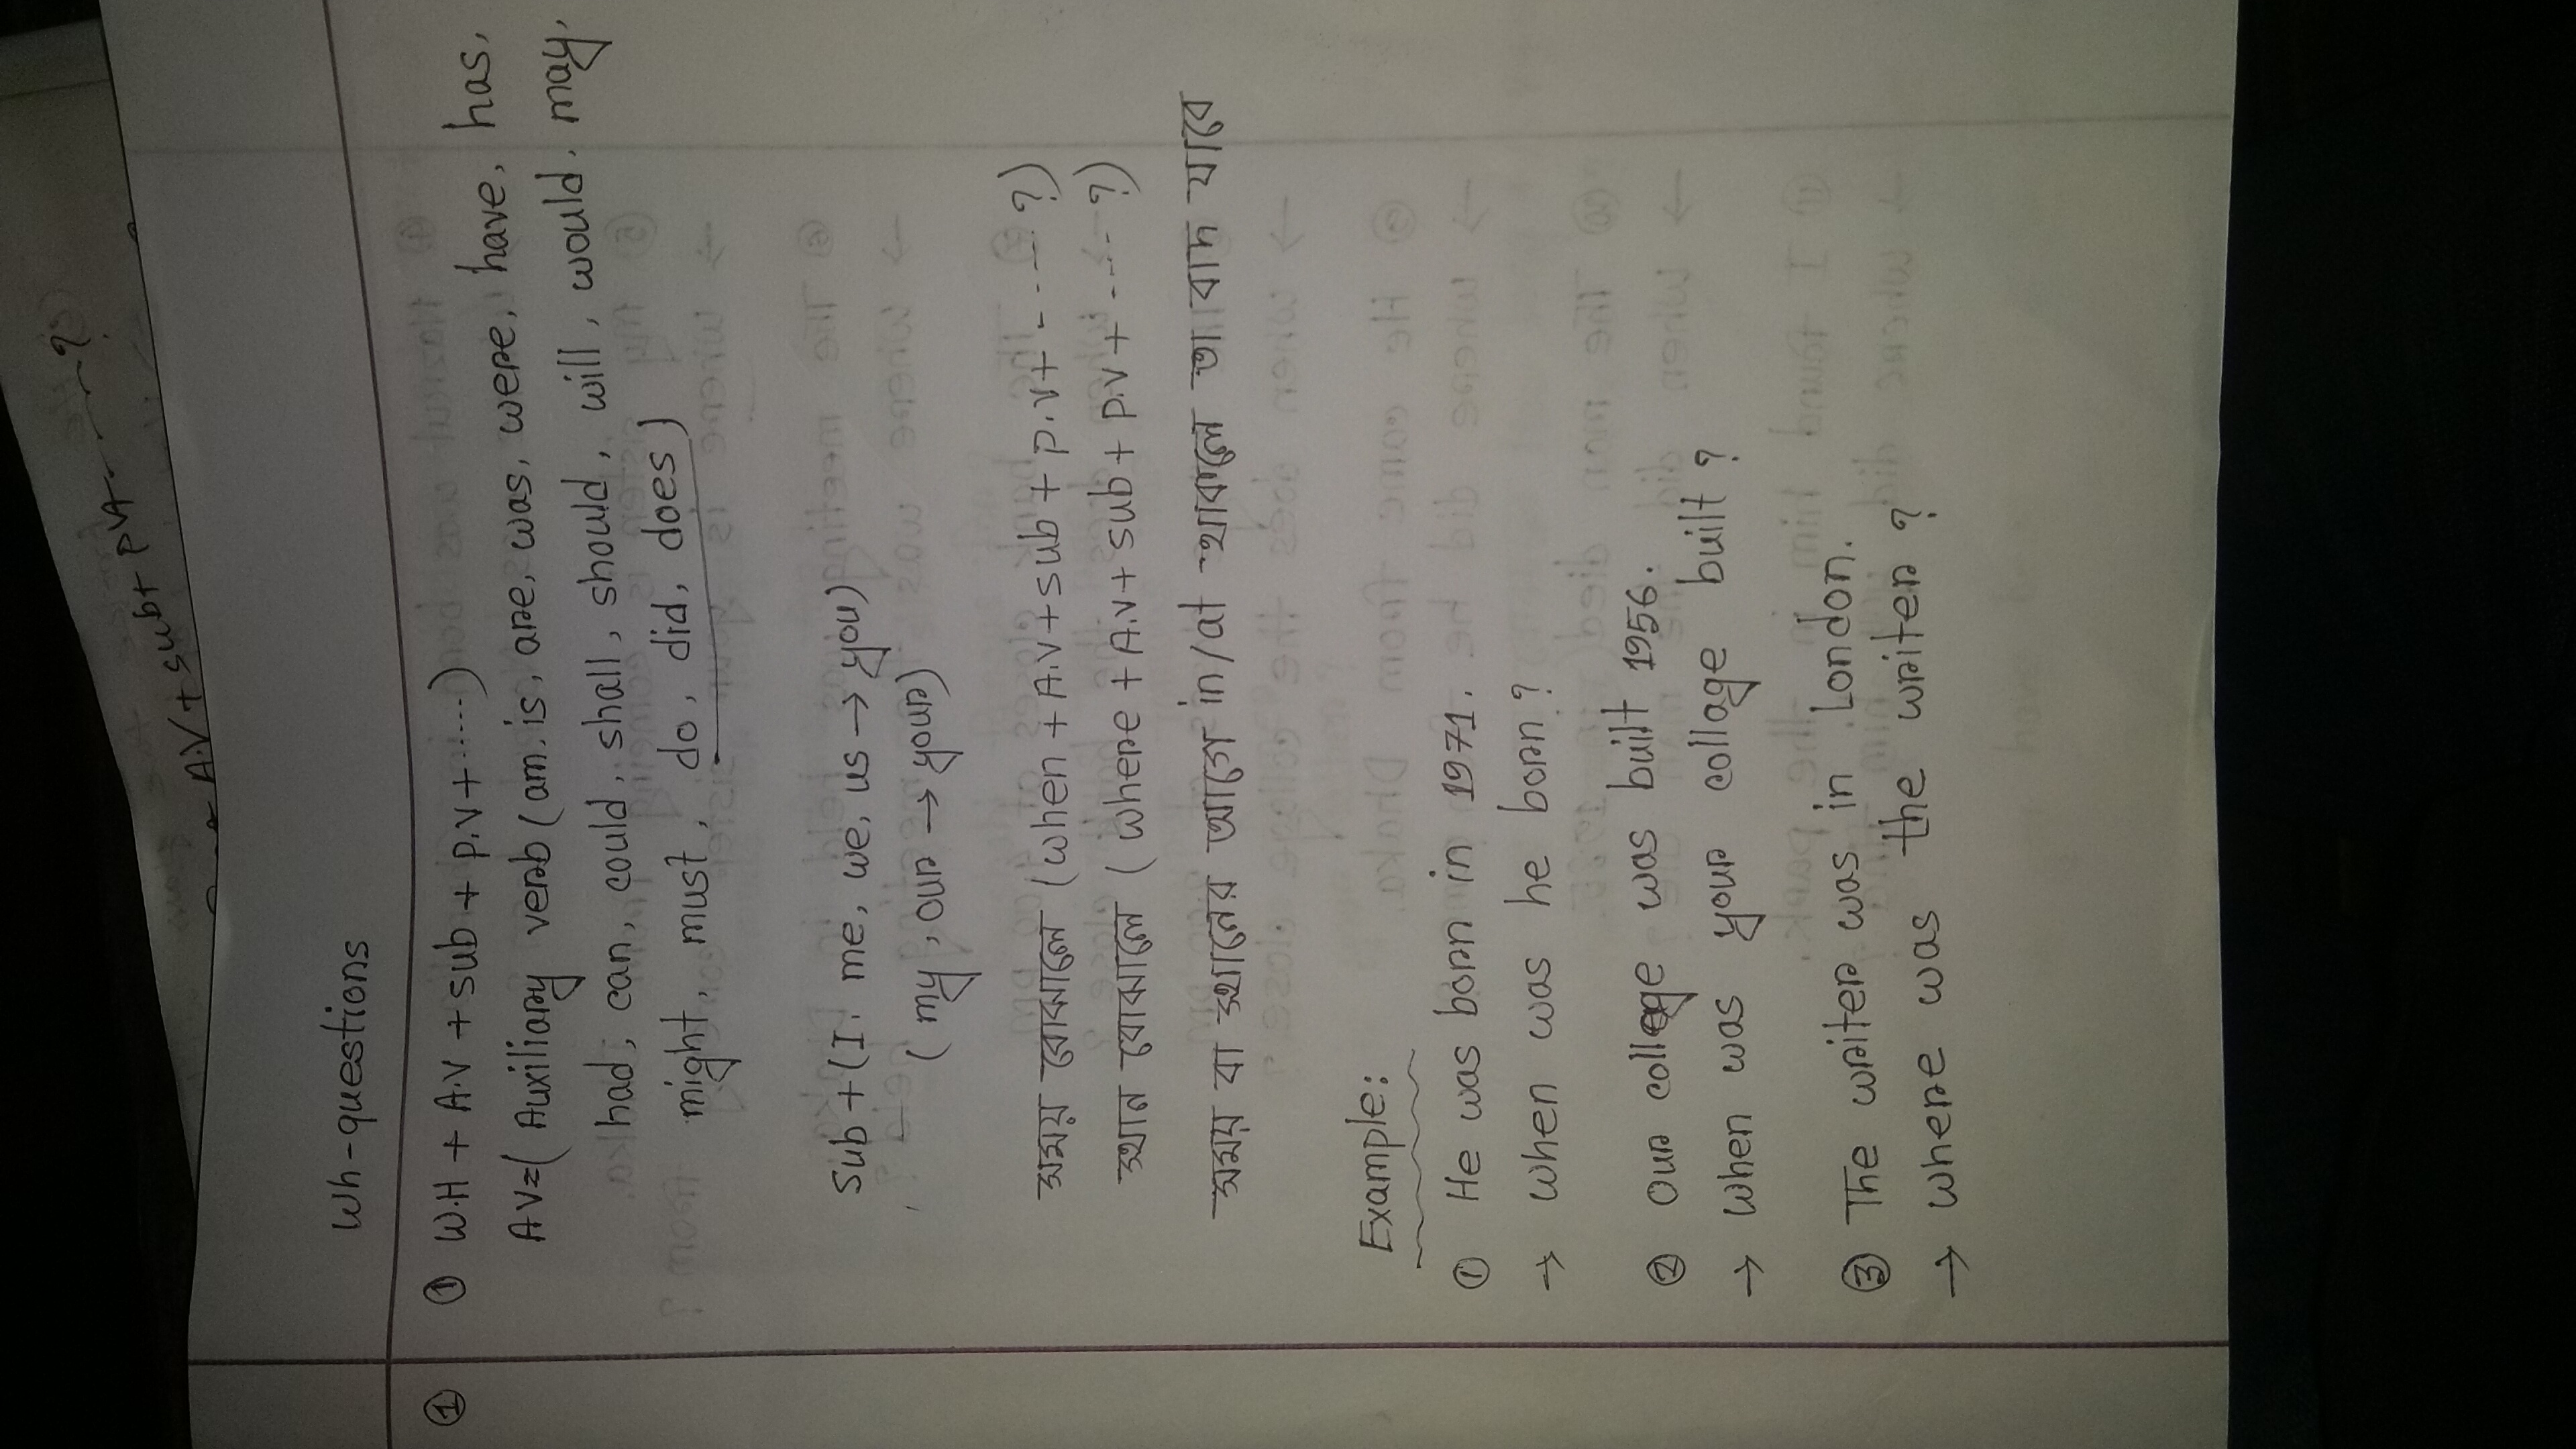 A.V + sub + P.V - - - - ?
Wh-questions
① ① W.H + A.V + sub + P.V + ......)
AV=( Auxiliary verb (am, is, are, was, were, have, has,
had, can, could, shall, should, will, would, may,
might, must, do, did, does)
Sub + (I, me, we, us → you)
( my, our → your)
সময় বোঝালে (when + A.V + sub + P.V + - - - - ?)
স্থান বোঝালে ( where + A.V + sub + P.V + - - - - ?)
সময় বা স্থানের আগে in/at থাকলে তা বাদ যাবে
Example:
① He was born in 1971.
→ When was he born?
② Our college was built 1956.
→ When was your collage built?
③ The writer was in London.
→ where was the writer?